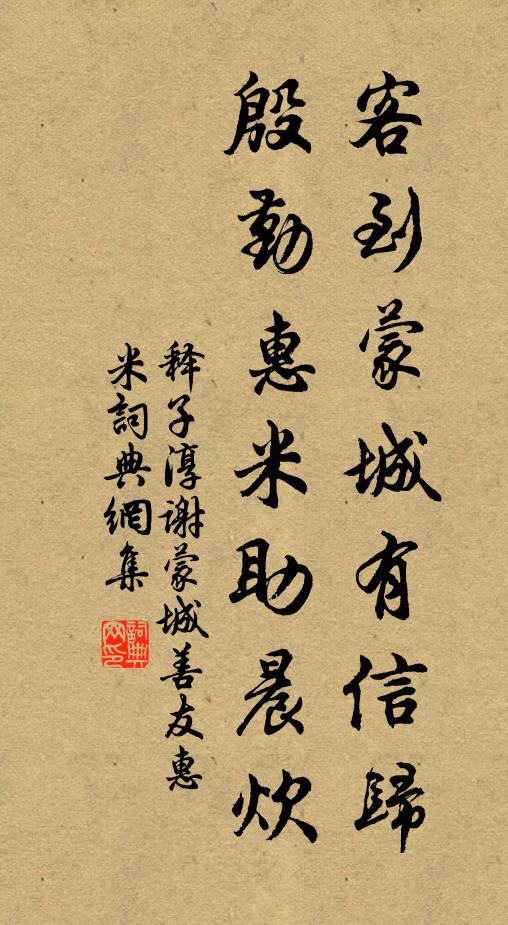 客到蒙城有信歸
殷勤惠米助晨炊
釋子淳謝蒙城善友惠
米詞典網集
詞典網印